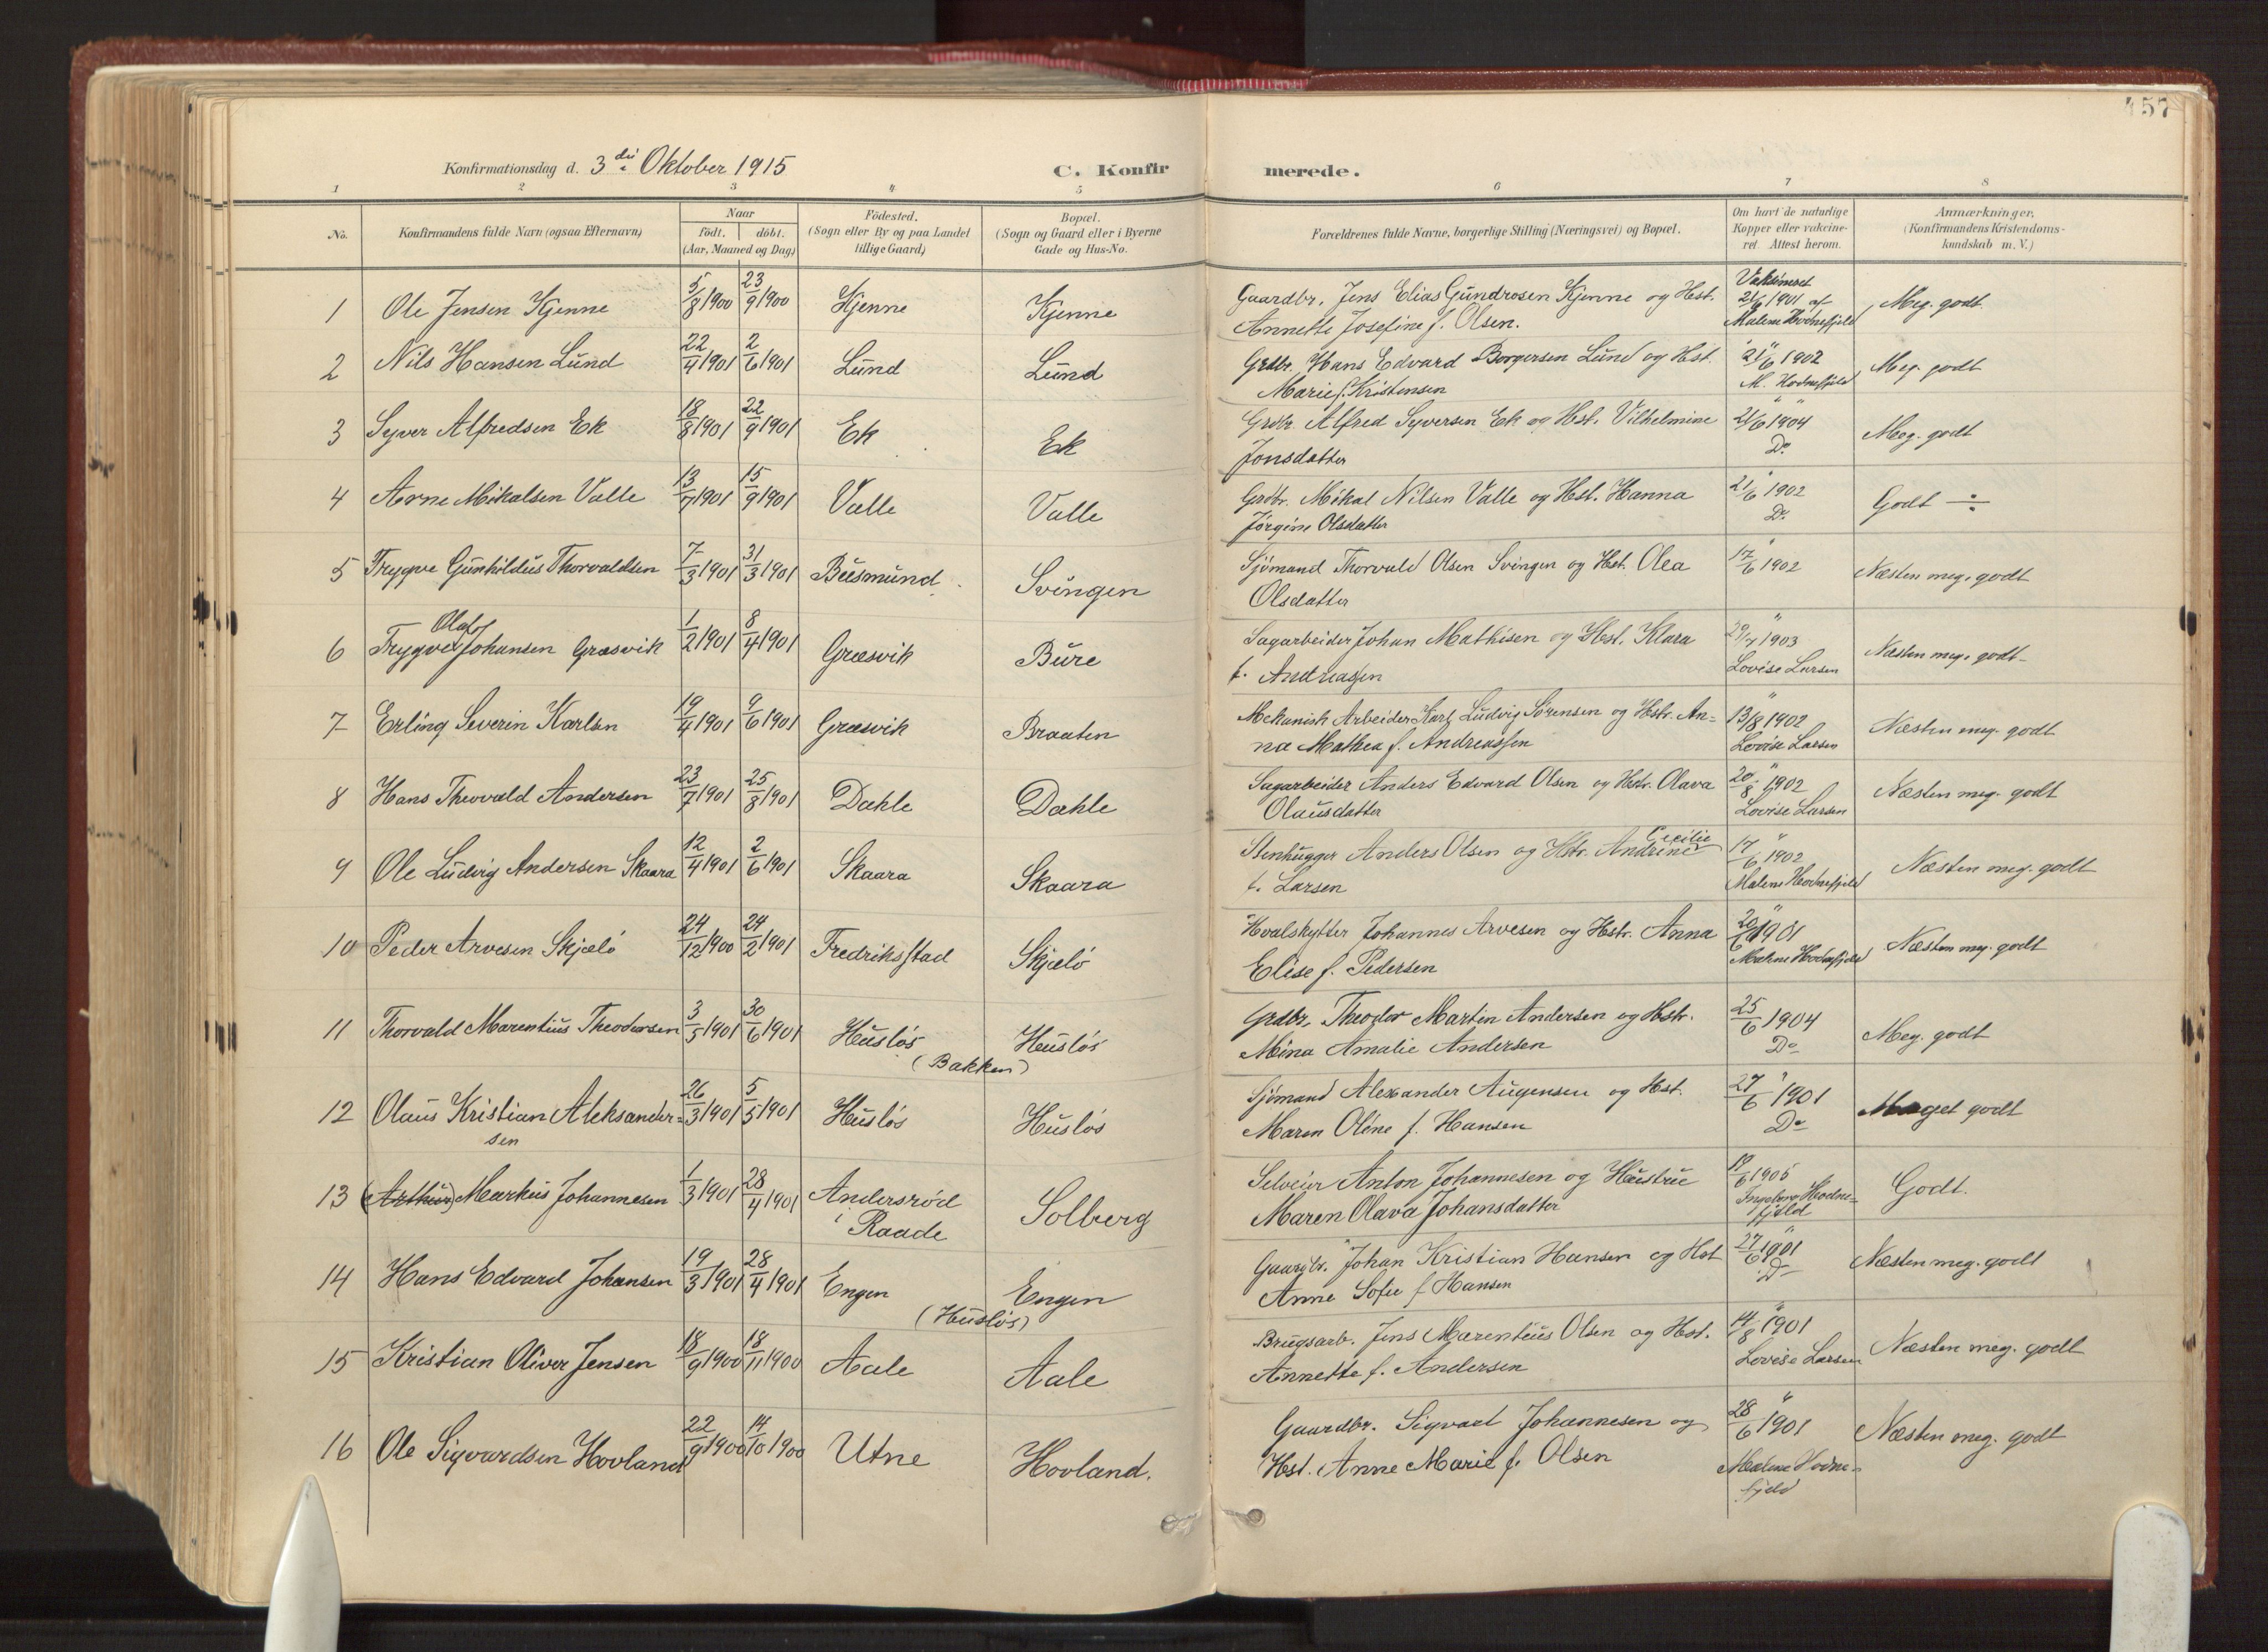 157
Konfirmationsdag d. 3die Oktober 1915
C. Konfirmerede.
1 2 3 4 5 6 7 8
No.
Konfirmandens fulde Navn (ogsaa Efternavn)
Naar
født. døbt.
(Aar, Maaned og Dag)
Fødested.
(Sogn eller By og paa Landet
tillige Gaard)
Bopæl.
(Sogn og Gaard eller i Byerne
Gade og Hus-No.
Forældrenes fulde Navne, borgerlige Stilling (Næringsvei) og Bopæl.
Om havt de naturlige
Kopper eller vakcine-
ret. Attest herom.
Anmærkninger.
(Konfirmandens Kristendoms-
kundskab m. V.)
1 Ole Jensen Kjenne 5/8 1900 23/9 1900 Kjenne Kjenne Gaardbr. Jens Elias Gundrosen Kjenne og Hst. Vaksineret 21/6 1901 af Meg. godt.
Annette Josefine f. Olsen. Malene Hodnefjeld
2 Nils Hansen Lund 22/4 1901 2/6 1901 Lund Lund Grdbr. Hans Edvard Borgersen Lund og Hst. " 21/6 1902 Meg. godt
Marie f. Kristensen M. Hodnefjeld
3 Syver Alfredsen Ek 18/8 1901 22/9 1901 Ek Ek Grdbr Alfred Syversen Ek og Hst. Vilhelmine " 21/6 1904 Meg. godt
Jonsdatter Do
4 Arne Mikalsen Valle 13/7 1901 15/9 1901 Valle Valle Grdbr. Mikal Nilsen Valle og Hst. Hanna " 21/6 1902 Godt ÷
Jørgine Olsdatter Do
5 Trygve Gunhildus Thorvaldsen 7/3 1901 31/3 1901 Buesmund Svingen Sjømand Thorvald Olsen Svingen og Hst. Olea " 17/6 1902 Næsten meg. godt
Olsdatter
6 Trygve Olaf Johansen Græsvik 1/2 1901 8/4 1901 Græsvik Bure Sagarbeider Johan Mathisen og Hst. Klara " 29/4 1903 Næsten meg. godt
f. Andreasen Lovise Larsen
7 Erling Severin Karlsen 19/4 1901 9/6 1901 Græsvik Braaten Mekanisk Arbeider Karl Ludvig Sørensen og Hstr. An= " 13/8 1902 Næsten meg. godt
na Mathea f. Andreassen Lovise Larsen
8 Hans Thorvald Andersen 23/7 1901 25/8 1901 Dahle Dahle Sagarbeider Anders Edvard Olsen og Hstr. Olava " 20/8 1902 Næsten meg. godt
Olausdatter Lovise Larsen
9 Ole Ludvig Andersen Skaara 12/4 1901 2/6 1901 Skaara Skaara Stenhugger Anders Olsen og Hstr. Andrine Cecilie " 17/6 1902 Næsten meg. godt
f. Larsen Malene Hodnefjeld
10 Peder Arvesen Skjælø 24/12 1900 24/2 1901 Fredriksstad Skjælø Hvalskytter Johannes Arvesen og Hstr. Anna " 20/6 1901 Næsten meg. godt
Elise f. Pedersen Malene Hodnefjeld
11 Thorvald Marentius Theodorsen 3/5 1901 30/6 1901 Husløs (Bakken) Husløs Grdbr. Theodor Martin Andersen og Hstr. 25/6 1904 Meg. godt
Mina Amalie Andersen Do
12 Olaus Kristian Aleksander= 26/3 1901 5/5 1901 Husløs Husløs Sjømand Alexander Augensen og Hst. " 27/6 1901 Meget godt
sen Maren Oline f. Hansen Do
13 (Arthur) Markus Johannesen 1/3 1901 28/4 1901 Andersrød Solberg Selveier Anton Johannesen og Hustrue 19/6 1905 Godt.
i Raade Maren Olava Johansdatter Ingeborg Hodne=
fjeld
14 Hans Edvard Johansen 19/3 1901 28/4 1901 Engen (Husløs) Engen Gaardbr. Johan Kristian Hansen og Hst " 27/6 1901 Næsten meg. godt
Anne Sofie f Hansen Do
15 Kristian Oliver Jensen 18/9 1900 18/11 1900 Aale Aale Brugsarb. Jens Marentius Olsen og Hst. " 14/8 1901 Næsten meg. godt
Annette f. Andersen Lovise Larsen
16 Ole Sigvardsen Hovland 22/9 1900 14/10 1900 Utne Hovland. Gaardbr. Sigvart Johannesen og " 28/6 1901 Næsten meg. godt
Hst. Anne Marie f. Olsen Malene Hodne=
fjeld